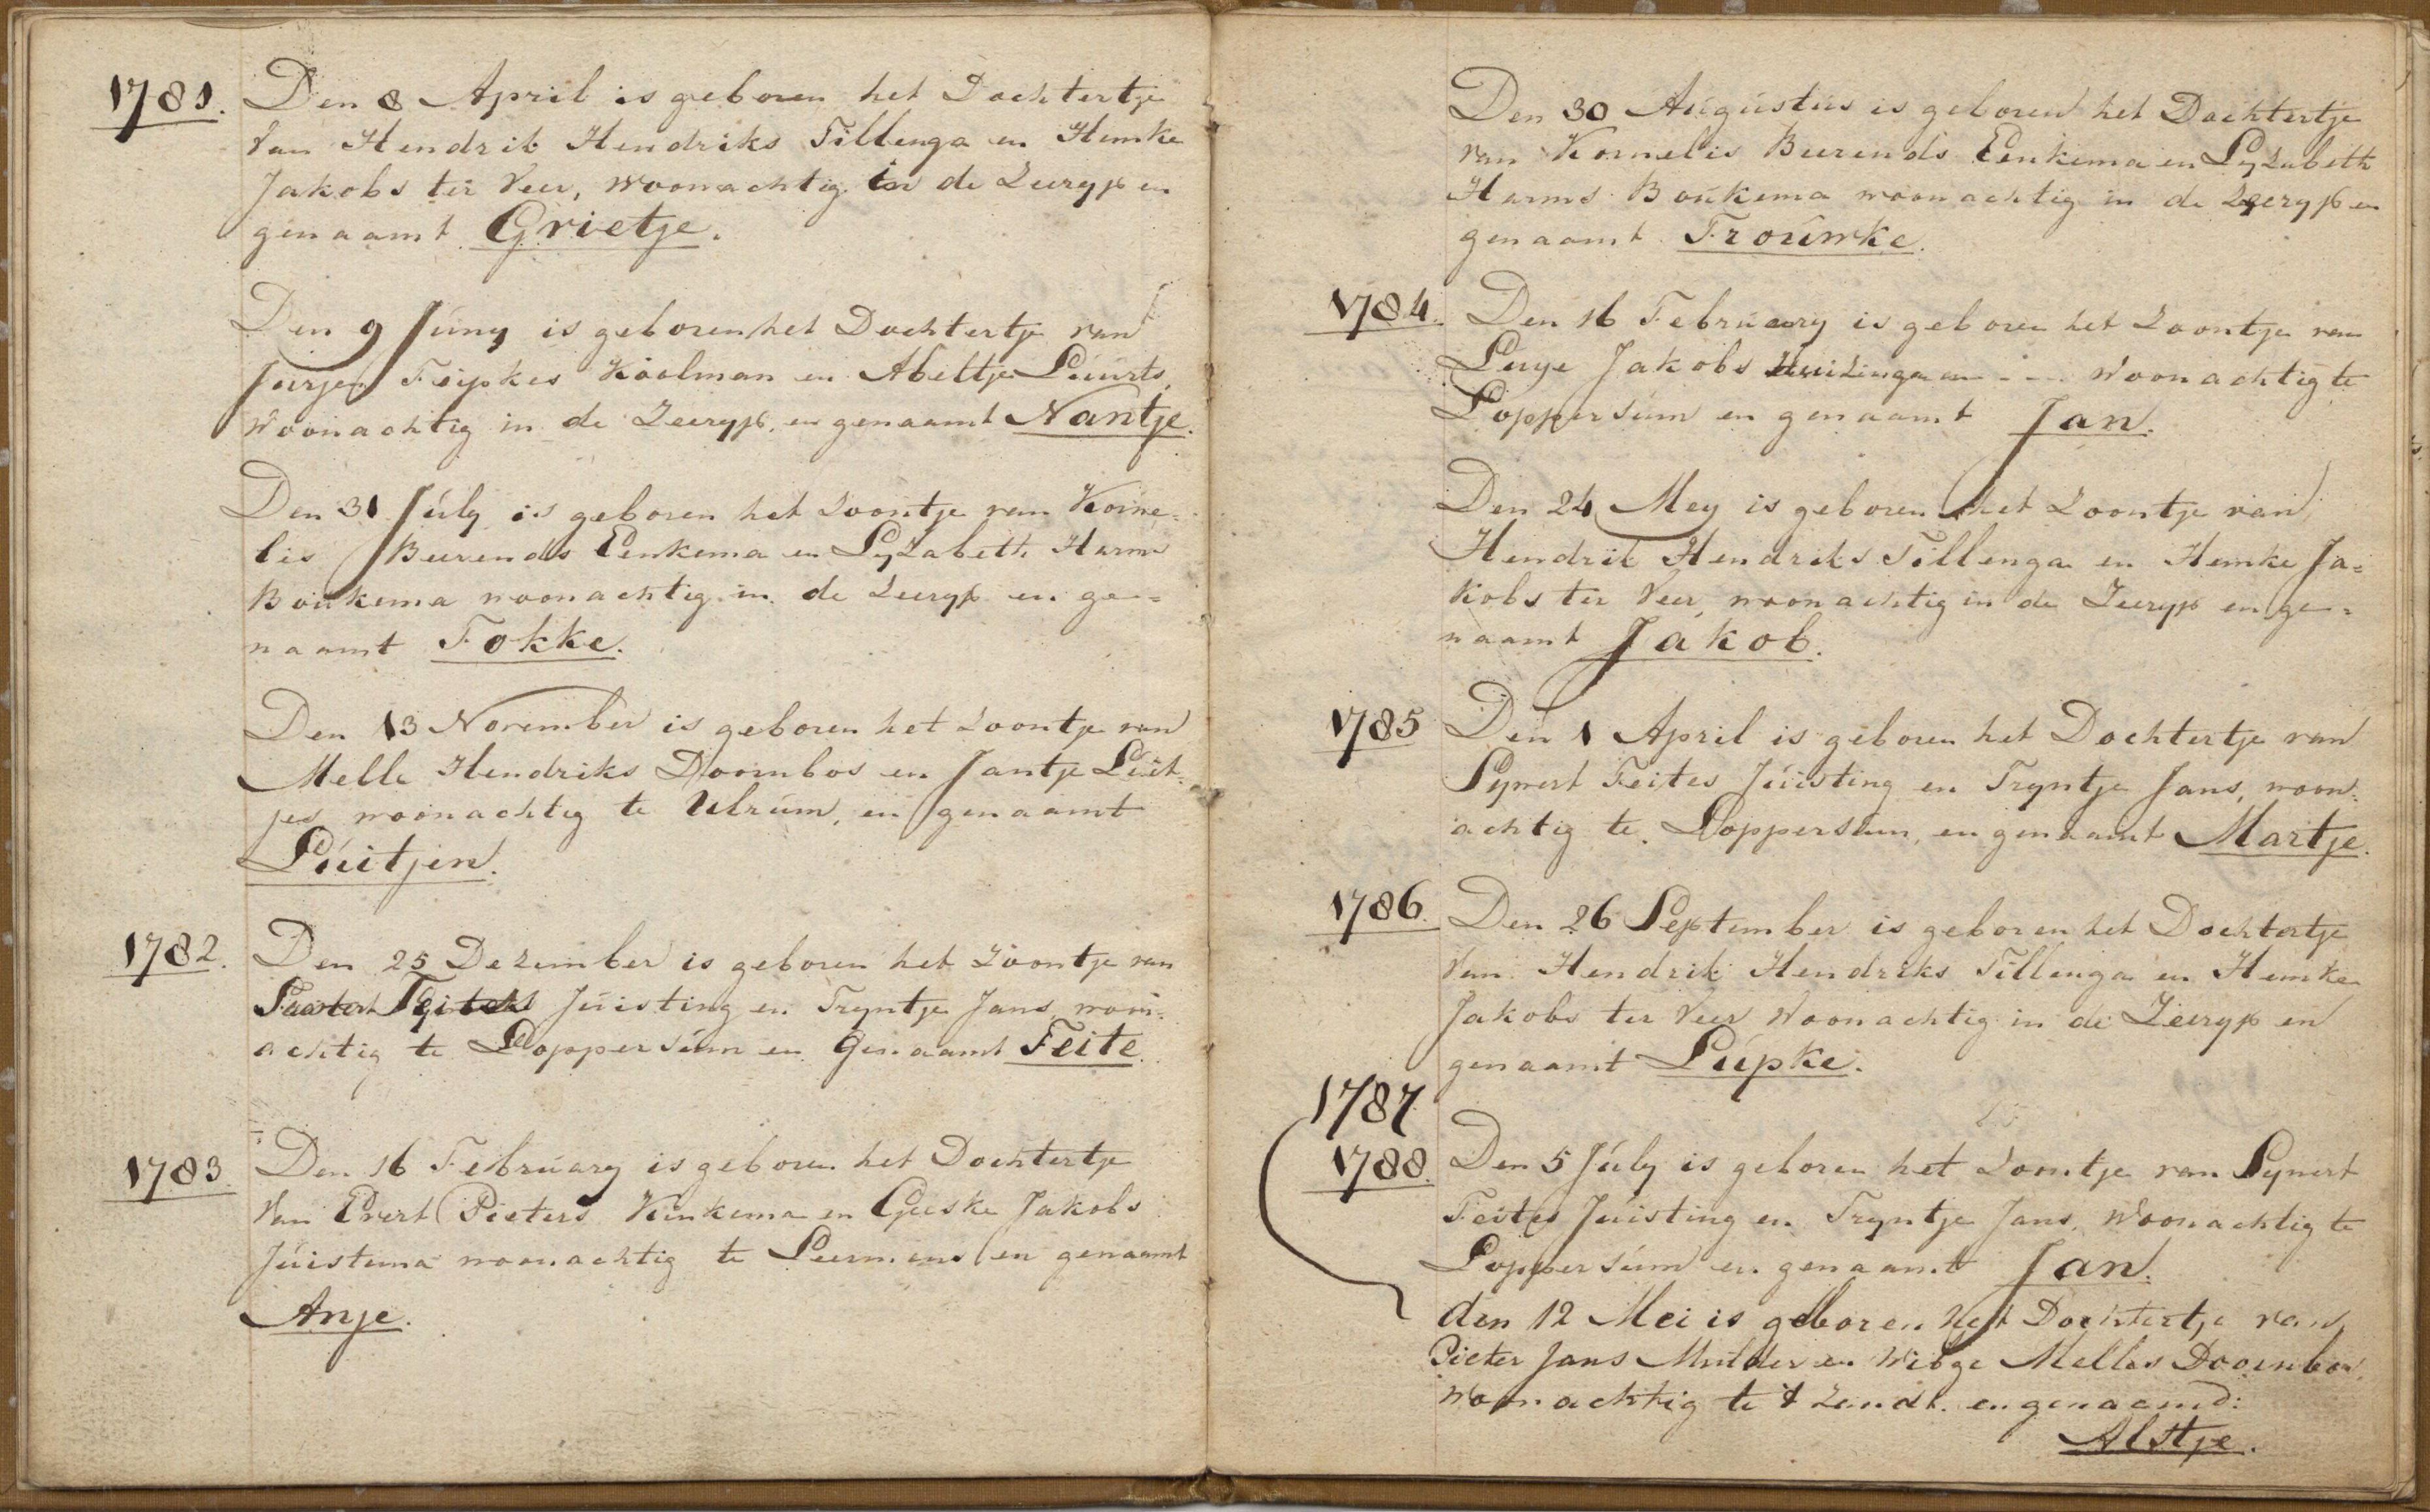 1781. Den 8 April is geboren het Dochtertje
van Hendrik Hendriks Tillenga en Hemke
Jakobs ter Veer, woonachtig in de Zeeryp en
genaamt Grietje.
Den 9 Júny is geboren het Dochtertje van
Júrjen Feipkes Koolman en Abeltje Lúúrts,
woonachtig in de Zeeryp, en genaamt Nantje.
Den 31 Júly is geboren het Zoontje van Korne=
lis Beerends Eenkema en Lyzabeth Harms
Boúkema woonachtig in de Zeeryp en ge=
naamt Fokke.
Den 13 November is geboren het Zoontje van
Melle Hendriks Doornbos en Jantje Lúit=
jes woonachtig te Ulrúm, en genaamt
Lúitjen.
1782. Den 25 Dezember is geboren het Zoontje van
Júisting en Tryntje Jans, woon=
achtig te Loppersúm en Genaamt Feite.
1783. Den 16 Febrúary is geboren het Dochtertje
van Evert Pieters Kúnkema en Geeske Jakobs
Júistema woonachtig te Leermens en genaamt
Anje.
Den 30 Aúgústús is geboren het Dochtertje
van Kornelis Beerends Eenkema en Lyzabeth
Harms Boúkema woonachtig in de Zeeryp en
genaamt Troúwke.
1784. Den 16 Febrúary is geboren het Zoontje van
Luije Jakobs Huizinga en - - - woonachtig te
Loppersúm en genaamt Jan.
Den 24 Mey is geboren het Zoontje van
Hendrik Hendriks Tillenga en Hemke Ja=
kobs ter Veer, woonachtig in de Zeeryp en ge=
naamt Jakob.
1785 Den 1 April is geboren het Dochtertje van
Sywert Feites Júisting en Tryntje Jans, woon=
achtig te Loppersúm, en genaamt Martje.
1786. Den 26 September is geboren het Dochtertje
van Hendrik Hendriks Tillenga en Hemke
Jakobs ter Veer woonachtig in de Zeeryp en
genaamt Lúpke.
1787
1788. Den 5 Júly is geboren het Zoontje van Sywert
Feites Júisting en Tryntje Jans, woonachtig te
Loppersúm en genaamt Jan.
den 12 Mei is geboren het Dochtertje van
Pieter Jans Mulder en Wibge Melles Doornbos,
woonachtig te 't Zandt. en genaamd:
Alstje.